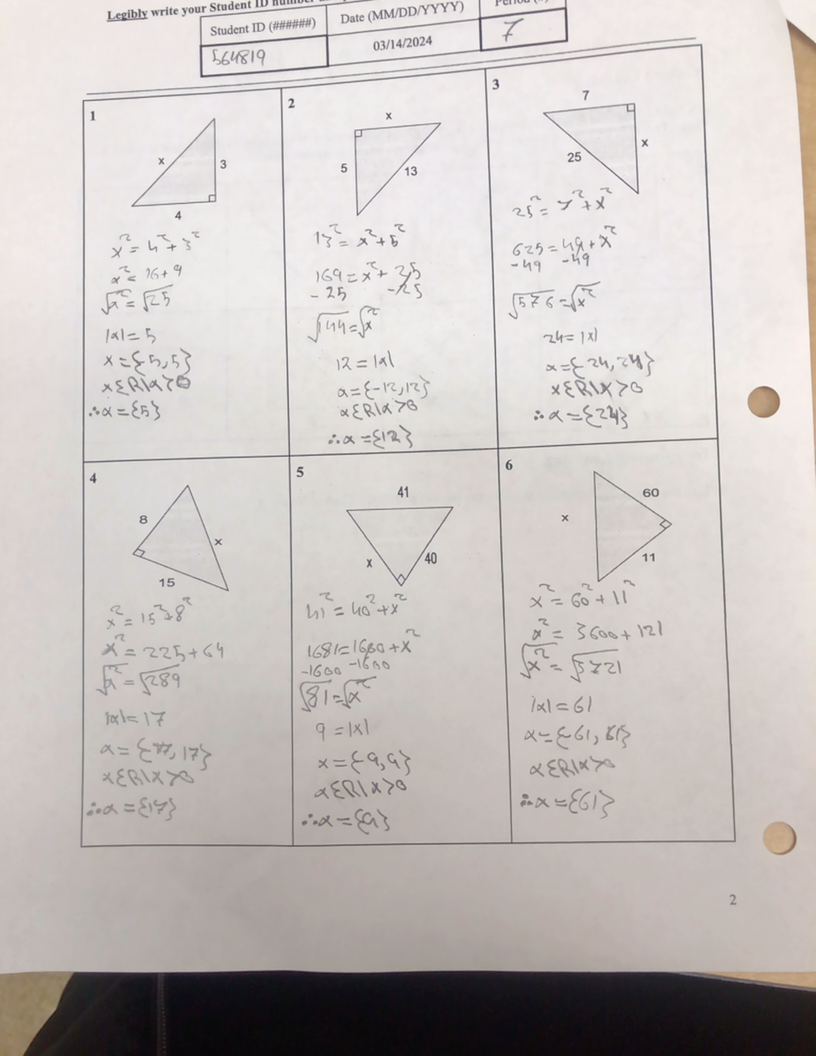 Legibly write your Student ID
Student ID (######)
Date (MM/DD/YYYY)
564819
03/14/2024
7
1
x
3
4
x² = 4² + 3²
x² = 16 + 9
√x² = √25
|x| = 5
x = {-5, 5}
x ∈ R | x > 0
∴ x = {5}
2
x
5
13
13² = x² + 5²
169 = x² + 25
- 25 - 25
√144 = √x²
12 = |x|
x = {-12, 12}
x ∈ R | x > 0
∴ x = {12}
3
7
x
25
25² = 7² + x²
625 = 49 + x²
-49 -49
√576 = √x²
24 = |x|
x = {-24, 24}
x ∈ R | x > 0
∴ x = {24}
4
8
x
15
x² = 15² + 8²
x² = 225 + 64
√x² = √289
|x| = 17
x = {-17, 17}
x ∈ R | x > 0
∴ x = {17}
5
41
x
40
41² = 40² + x²
1681 = 1600 + x²
-1600 -1600
√81 = √x²
9 = |x|
x = {-9, 9}
x ∈ R | x > 0
∴ x = {9}
6
60
x
11
x² = 60² + 11²
x² = 3600 + 121
√x² = √3721
|x| = 61
x = {-61, 61}
x ∈ R | x > 0
∴ x = {61}
2